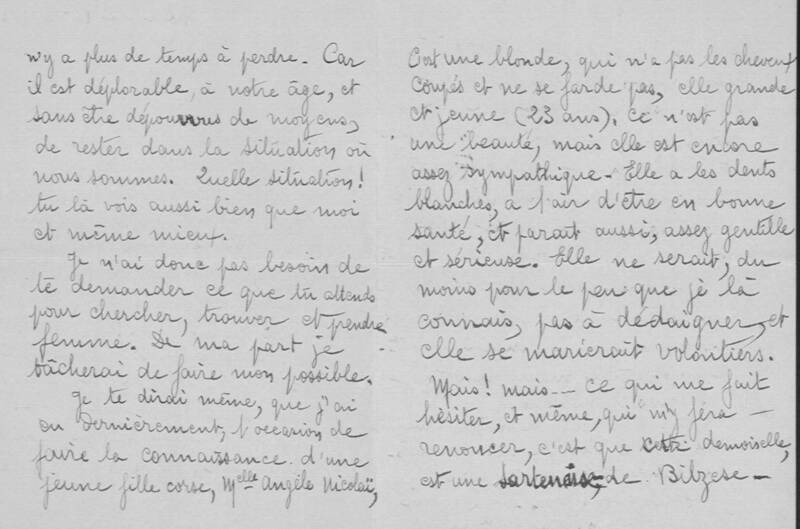 n'y a plus de temps à perdre. Car
il est déplorable, à notre âge, et
sans être dépourvus de moyens,
de rester dans la situation où
nous sommes. Quelle situation!
tu là vois aussi bien que moi
et même mieux.
Je n'ai donc pas besoin de
te demander ce que tu attends
pour chercher, trouver et prendre
femme. De ma part je
tâcherai de faire mon possible.
Je te dirai même, que j'ai
eu dernièrement, l'occasion de
faire la connaissance d'une
jeune fille corse, Melle Angèle Nicolaï,
C'est une blonde, qui n'a pas les cheveux
coupés et ne se farde pas, elle grande
et jeune (23 ans). Ce n'est pas
une beauté, mais elle est encore
assez sympathique - Elle a les dents
blanches, a l'air d'être en bonne
santé, et parait aussi, assez gentille
et sérieuse. Elle ne serait, du
moins pour le peu que je là
connais, pas à dédaigner, et
elle se marierait volontiers.
Mais! mais -- ce qui me fait
hésiter, et même, qui m'y fera -
renoncer, c'est que cette demoiselle,
est une sartenaise, de Bilzese -